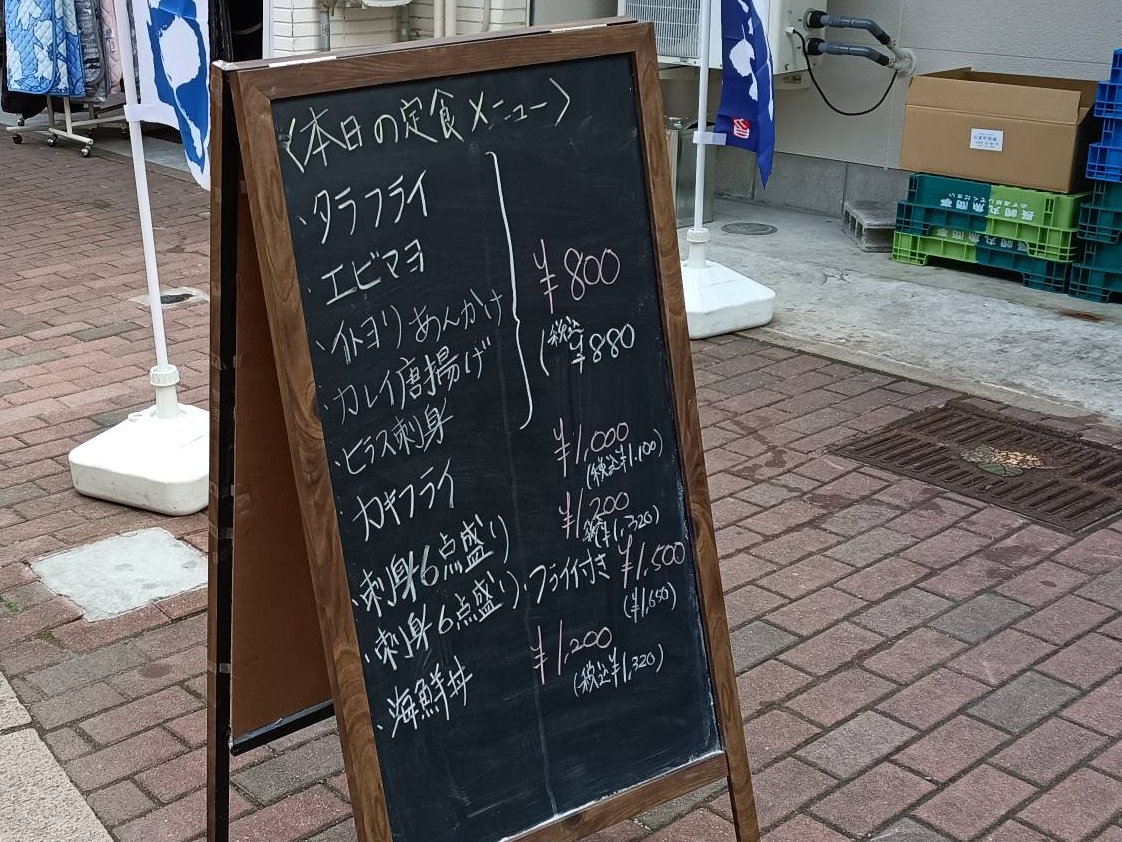 〈本日の定食メニュー〉
・タラフライ
・エビマヨ
・イトヨリあんかけ
・カレイ唐揚げ
・ヒラス刺身
¥800
(税込¥880
・カキフライ ¥1,000
(税込¥1,100)
・刺身6点盛り ¥1,200
(税込¥1,320)
・刺身6点盛り、フライ付き ¥1,500
(¥1,650)
・海鮮丼 ¥1,200
(税込¥1,320)
長崎丸魚商事